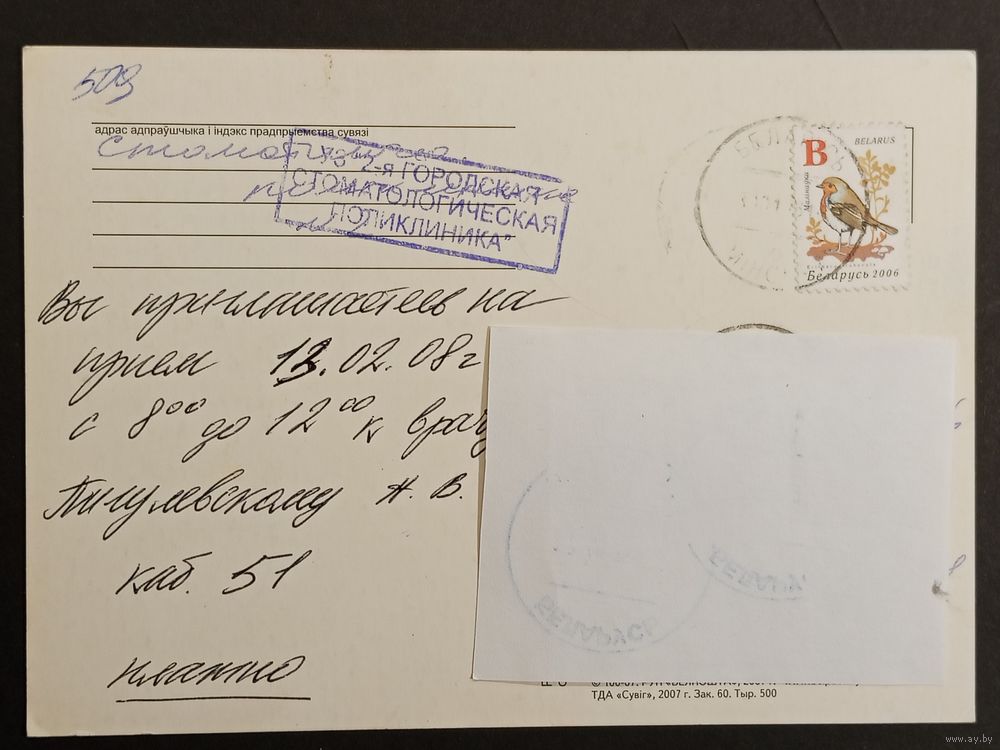 509
адрас адпраўшчыка і індэкс прадпрыемства сувязі
2-я ГОРОДСКАЯ
СТОМАТОЛОГИЧЕСКАЯ
ПОЛИКЛИНИКА"
БЕЛАРУСЬ
B
BELARUS
Беларусь 2006
Вы приглашаетесь на
прием 13.02.08г
с 8⁰⁰ до 12⁰⁰ к врачу
Пигулевскому А. В.
каб. 51
планно
БЕЛАРУСЬ
ТДА «Сувіг», 2007 г. Зак. 60. Тыр. 500
www.ay.by